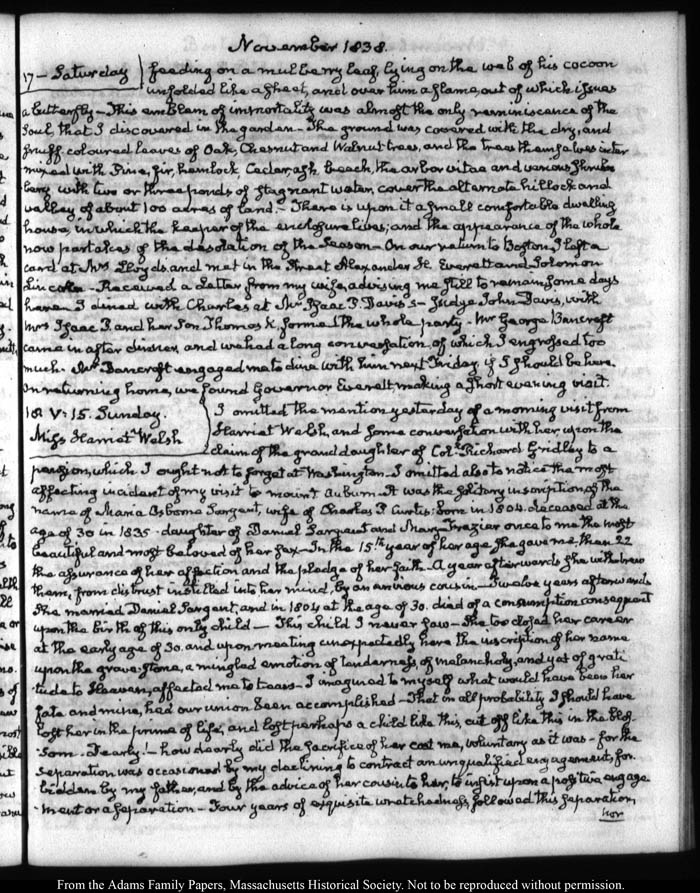 November 1838.
17 – Saturday feeding on a mulberry leaf, lying on the web of his cocoon
unfolded like a sheet, and over him a flame, out of which issues
a butterfly – This emblem of immortality was almost the only reminiscence of the
Soul, that I discovered in the garden – The ground was covered with the dry, and
snuff coloured leaves of Oak, Chesnut and Walnut trees, and the trees themselves inter
mixed with Pine, fir, hemlock, Cedar, ash, beech, the arbor vitae and various shrub
bery with two or three ponds of stagnant water, cover the alternate hillock and
valley of about 100 acres of land. – There is upon it a small comfortable dwelling
house, in which the keeper of the enclosure lives; and the appearance of the whole
now partakes of the desolation of the Season – On our return to Boston, I left a
card at Mrs Lloyd's and met in the Street Alexander H. Everett and Solomon
Lincoln – Received a Letter from my wife, advising me still to remain some days
here – I dined with Charles at Mr Isaac P. Davis's – Judge John Davis, with
Mrs Isaac P. and her Son Thomas K, formed the whole party – Mr George Bancroft
came in after dinner, and we had a long conversation, of which I engrossed too
much – Mr Bancroft engaged me to dine with him next Friday, if I should be here.
On returning home, we found Governor Everett, making a short evening visit.
18. V. 15. Sunday. I omitted the mention yesterday of a morning visit from
Miss Harriet Welsh Harriet Welsh, and some conversation with her, upon the
claim of the grand daughter of Colr. Richard Gridley to a
pension, which I ought not to forget at Washington – I omitted also to notice the most
affecting incident of my visit to mount Auburn – It was the solitary inscription, of the
name of Maria Osborne Sargent, wife of Charles P. Curtis: born in 1804. deceased at the
age of 30 in 1835 – daughter of Daniel Sargent and Mary Frazier once to me the most
beautiful and most beloved of her sex – In the 15th year of her age she gave me, then 22
the assurance of her affection and the pledge of her faith – A year afterwards she withdrew
them, from distrust instilled into her mind, by an envious cousin – Twelve years afterwards
She married Daniel Sargent, and in 1804 at the age of 30. died of a consumption consequent
upon the birth of this only child – This child I never saw – She too closed her career
at the early age of 30. and upon meeting unexpectedly here the inscription of her name
upon the grave-stone, a mingled emotion of tenderness, of melancholy, and yet of grati
tude to Heaven, affected me to tears – I imagined to myself what would have been her
fate and mine, had our union been accomplished – That in all probability I should have
lost her in the prime of life, and lost perhaps a child like this, cut off like this in the blos-
som. Dearly! – how dearly did the sacrifice of her cost me, voluntary as it was – for the
separation was occasioned by my declining to contract an unqualified engagement, for-
bidden by my father, and by the advice of her cousin to her, to insist upon a positive engage
-ment or a separation – Four years of exquisite wretchedness, followed this separation,
nor
From the Adams Family Papers, Massachusetts Historical Society. Not to be reproduced without permission.